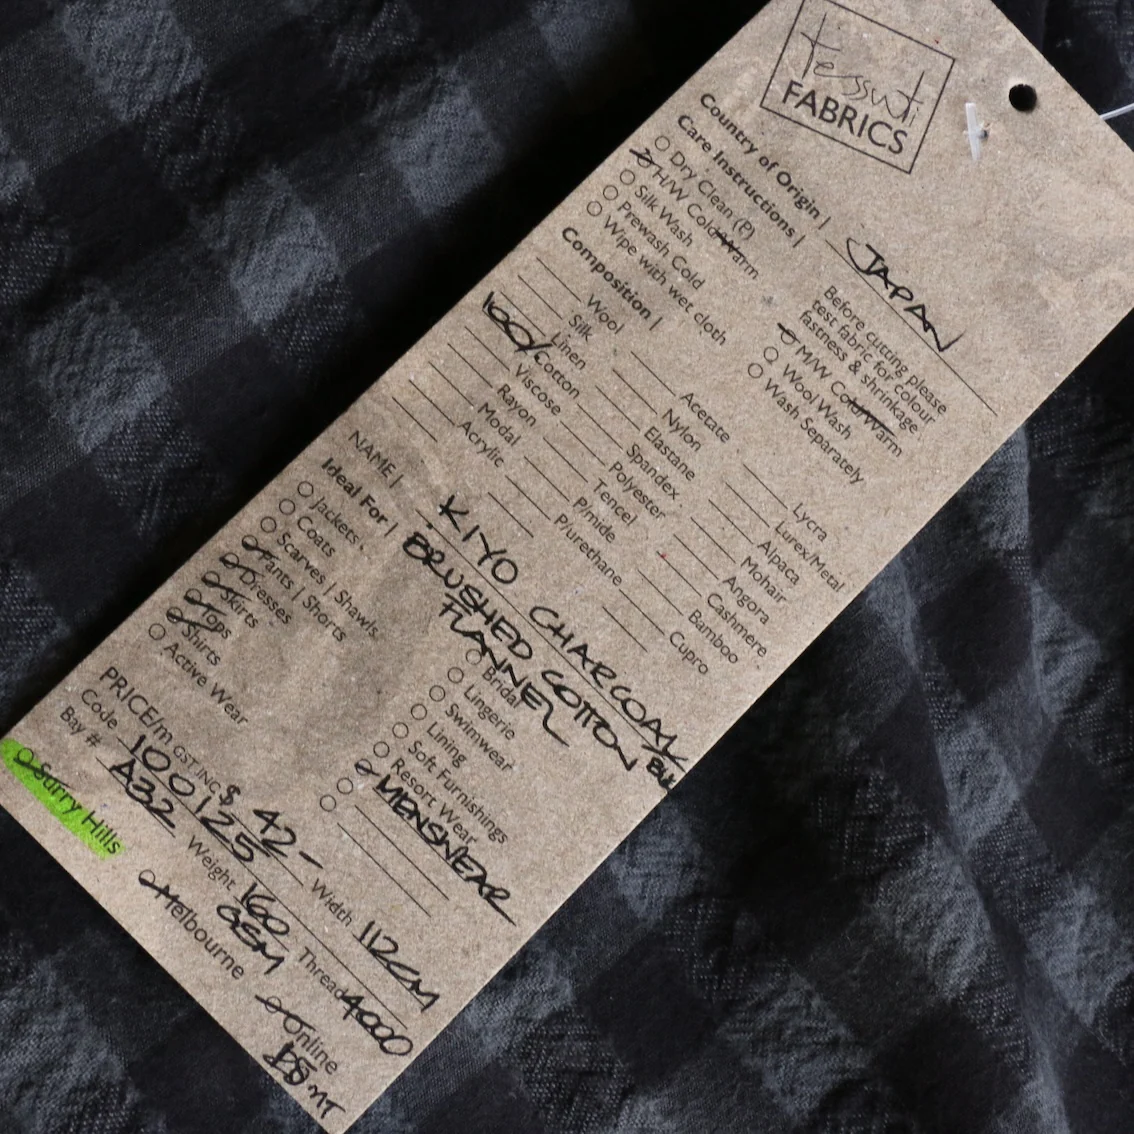 tessuti
FABRICS
Country of Origin | JAPAN
Care Instructions |
Before cutting please
test fabric for colour
fastness & shrinkage
Dry Clean (P)
H/W Cold/Warm
Silk Wash
Prewash Cold
Wipe with wet cloth
M/W Cold/Warm
Wool Wash
Wash Separately
Composition |
Wool
Silk
Linen
100% Cotton
Viscose
Rayon
Modal
Acrylic
Acetate
Nylon
Elastane
Spandex
Polyester
Tencel
P/mide
P/urethane
Lycra
Lurex/Metal
Alpaca
Mohair
Angora
Cashmere
Bamboo
Cupro
NAME | KIYO CHARCOAL
BRUSHED COTTON
FLANNEL
Ideal For |
Jackets
Coats
Scarves | Shawls
Pants | Shorts
Dresses
Skirts
Tops
Shirts
Active Wear
Bridal
Lingerie
Swimwear
Lining
Soft Furnishings
Resort Wear
MENSWEAR
PRICE/m GST.INC $ 42-
Width 112CM
Code 100125
Weight 160
GSM
Thread 4000
Bay # A32
Surry Hills
Melbourne
Online
MT